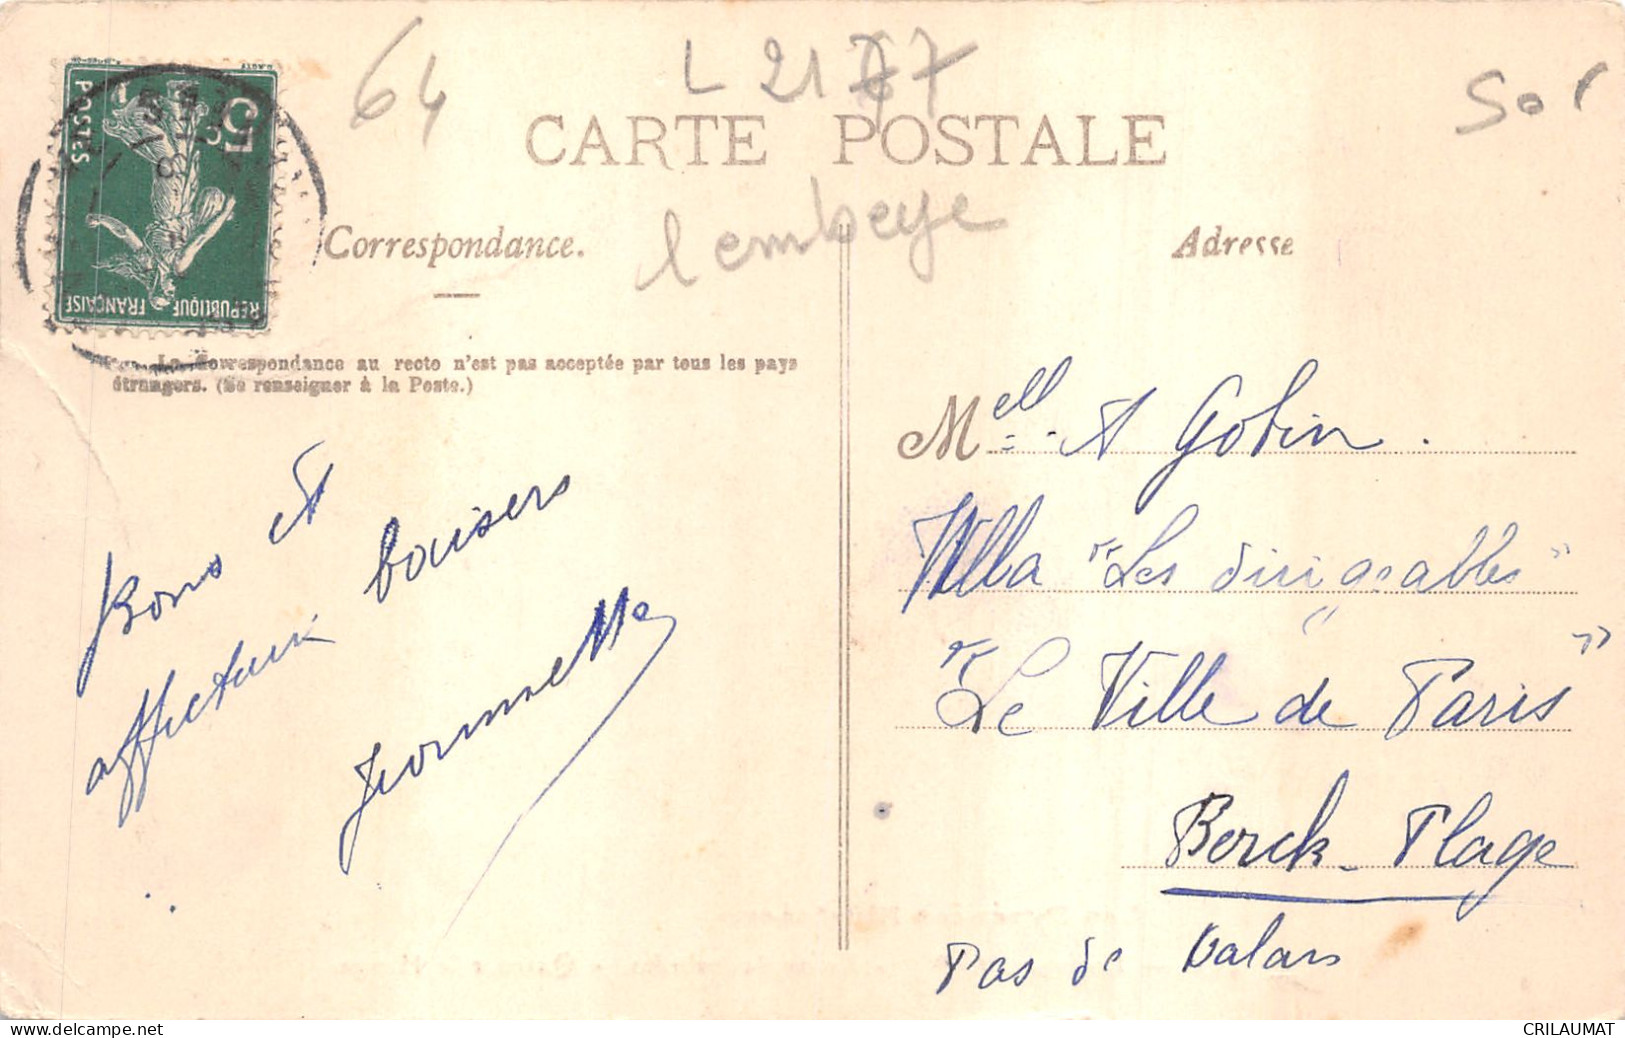 64
L 2177
50
CARTE POSTALE
lembeye
POSTES
5
REPUBLIQUE FRANÇAISE
Correspondance.
Adresse
La Correspondance au recto n'est pas acceptée par tous les pays
étrangers. (Se renseigner à la Poste.)
Bons et
affectueux baisers
Jeannette
Mell A Gobin.
Villa "Les dirigeables"
"Le Ville de Paris"
Berck-Plage
Pas de Calais
delcampe.net
CRILAUMAT